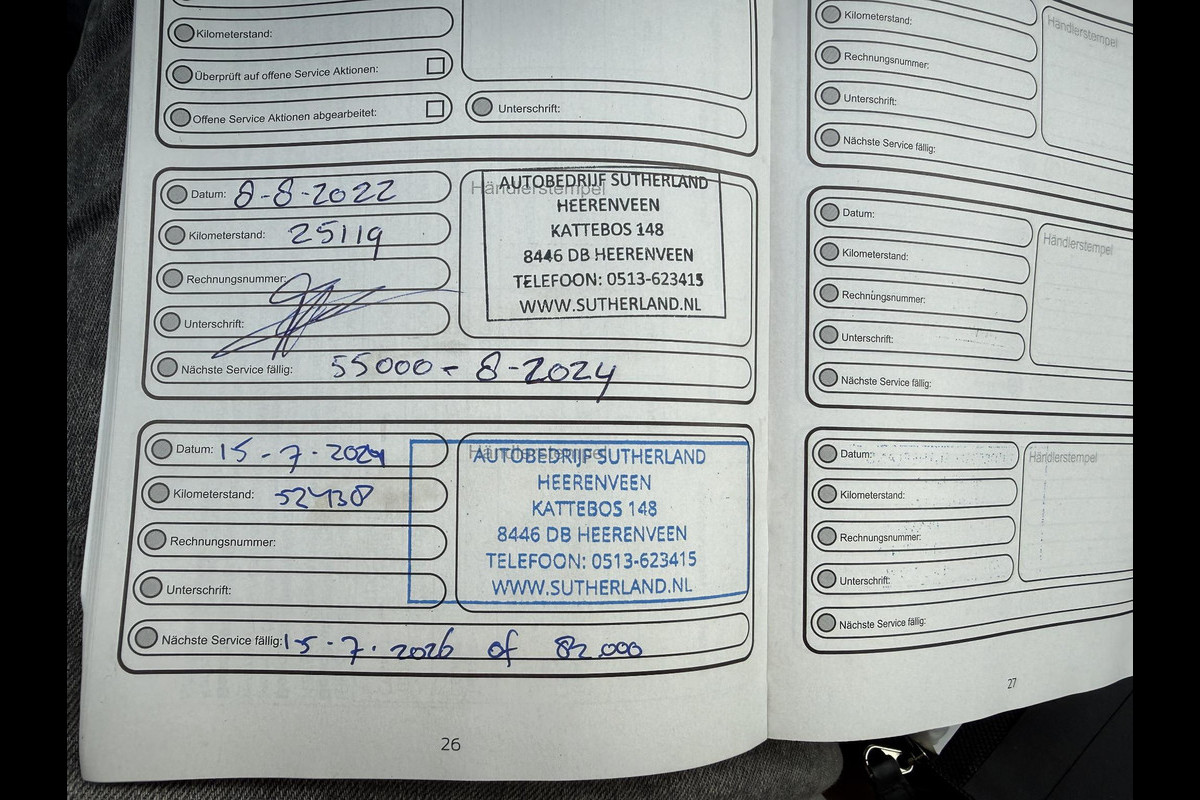 Kilometerstand:
Überprüft auf offene Service Aktionen:
Offene Service Aktionen abgearbeitet:
Unterschrift:
Datum: 8-8-2022
Kilometerstand: 25119
Rechnungsnummer:
Unterschrift:
Nächste Service fällig: 55000 - 8-2024
Händlerstempel
AUTOBEDRIJF SUTHERLAND
HEERENVEEN
KATTEBOS 148
8446 DB HEERENVEEN
TELEFOON: 0513-623415
WWW.SUTHERLAND.NL
Datum: 15-7-2024
Kilometerstand: 52438
Rechnungsnummer:
Unterschrift:
Nächste Service fällig: 15-7-2026 of 82.000
Händlerstempel
AUTOBEDRIJF SUTHERLAND
HEERENVEEN
KATTEBOS 148
8446 DB HEERENVEEN
TELEFOON: 0513-623415
WWW.SUTHERLAND.NL
26
Kilometerstand:
Rechnungsnummer:
Unterschrift:
Nächste Service fällig:
Händlerstempel
Datum:
Kilometerstand:
Rechnungsnummer:
Unterschrift:
Nächste Service fällig:
Händlerstempel
Datum:
Kilometerstand:
Rechnungsnummer:
Unterschrift:
Nächste Service fällig:
Händlerstempel
27